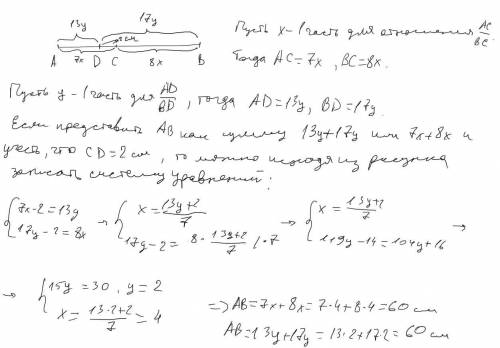 13y 17y
2см
A 7x D C 8x B
Пусть x - 1 часть для отношения AC/BC.
Тогда AC=7x, BC=8x.
Пусть y - 1 часть для AD/BD, тогда AD=13y, BD=17y.
Если представить AB как сумму 13y+17y или 7x+8x и
учесть, что CD=2см, то можно исходя из рисунка
записать систему уравнений:
{7x-2=13y → {x=(13y+2)/7 → {x=(13y+2)/7 →
{17y-2=8x {17y-2=8·(13y+2)/7 |·7 {119y-14=104y+16
→ {15y=30, y=2 ⇒ AB=7x+8x=7·4+8·4=60 см
{x=(13·2+2)/7=4 AB=13y+17y=13·2+17·2=60 см